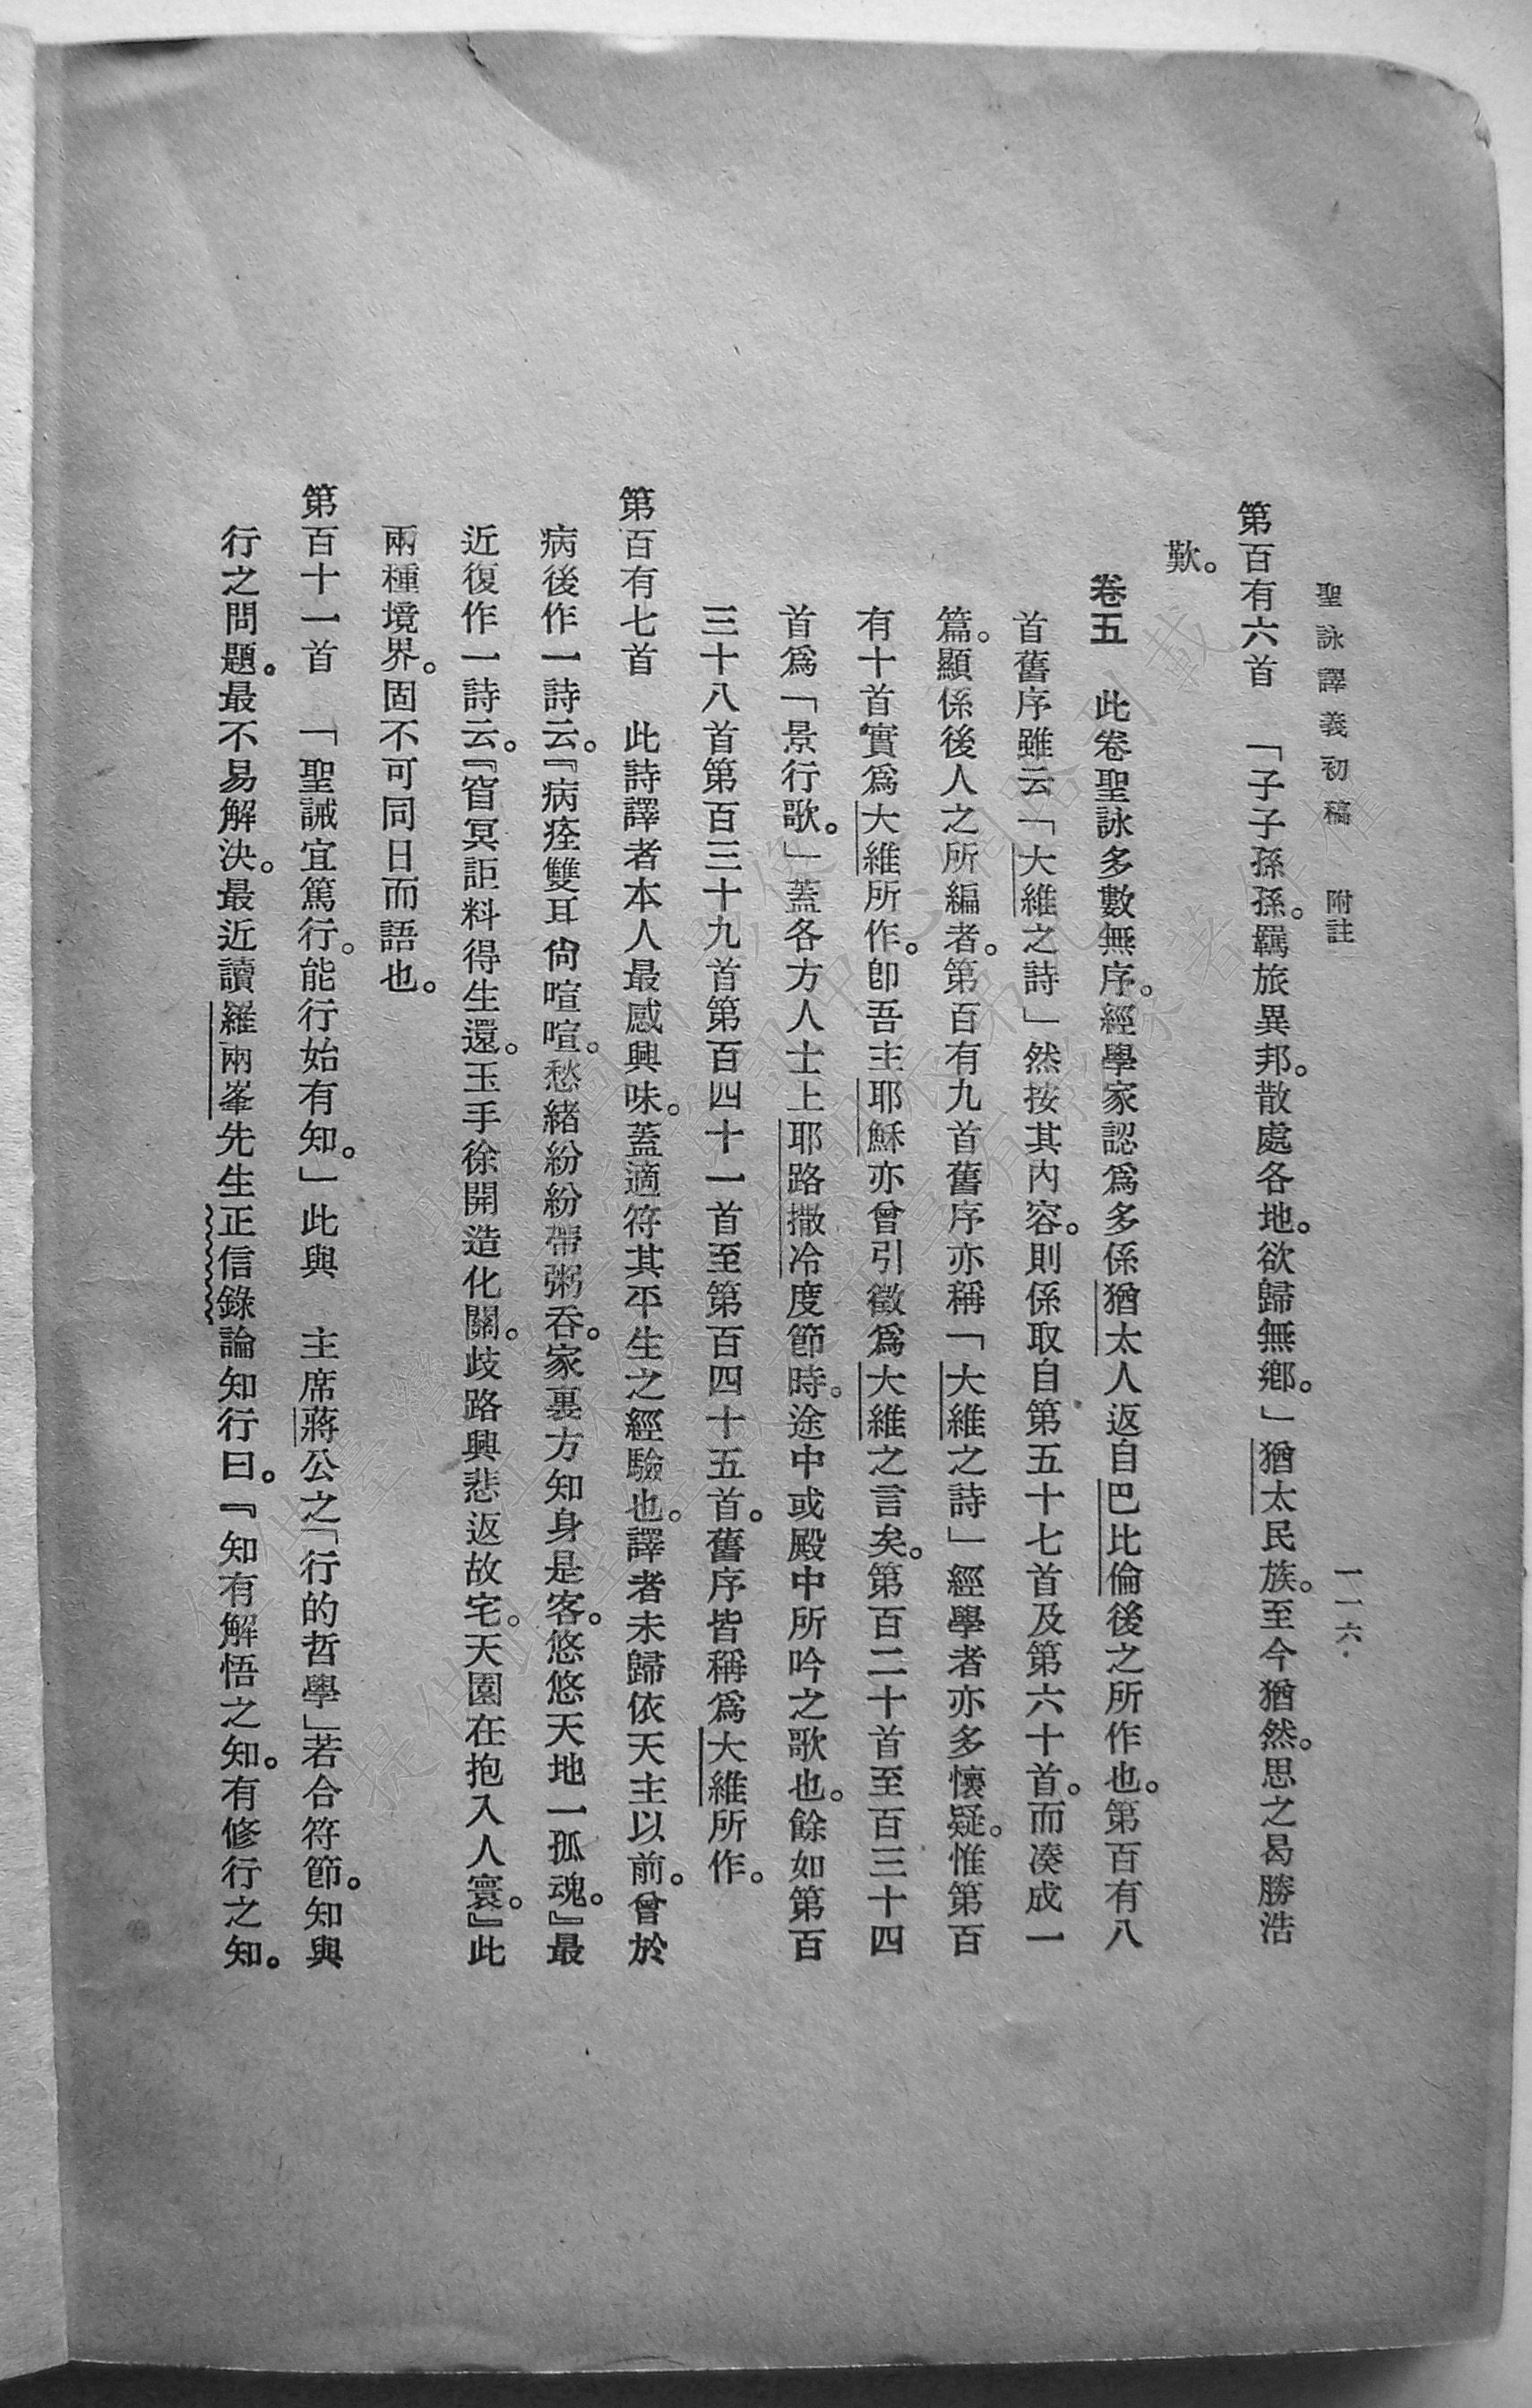 聖詠譯義初稿　附註　一一六
第百有六首　「子子孫孫。羈旅異邦。散處各地。欲歸無鄉。」猶太民族。至今猶然。思之曷勝浩
歎。
卷五　此卷聖詠多數無序。經學家認爲多係猶太人返自巴比倫後之所作也。第百有八
首舊序雖云「大維之詩」然按其內容。則係取自第五十七首及第六十首。而湊成一
篇。顯係後人之所編者。第百有九首舊序亦稱「大維之詩」經學者亦多懷疑。惟第百
有十首實爲大維所作。卽吾主耶穌亦曾引徵爲大維之言矣。第百二十首至百三十四
首爲「景行歌。」蓋各方人士上耶路撒冷度節時。途中或殿中所吟之歌也。餘如第百
三十八首第百三十九首第百四十一首至第百四十五首。舊序皆稱爲大維所作。
第百有七首　此詩譯者本人最感興味。蓋適符其平生之經驗也。譯者未歸依天主以前。曾於
病後作一詩云。『病痊雙耳尙喧喧。愁緖紛紛帶粥吞。家裏方知身是客。悠悠天地一孤魂。』最
近復作一詩云。『窅冥詎料得生還。玉手徐開造化關。歧路興悲返故宅。天園在抱入人寰。』此
兩種境界。固不可同日而語也。
第百十一首　「聖誡宜篤行。能行始有知。」此與　主席蔣公之「行的哲學」若合符節。知與
行之問題。最不易解決。最近讀羅兩峯先生正信錄論知行曰。『知有解悟之知。有修行之知。